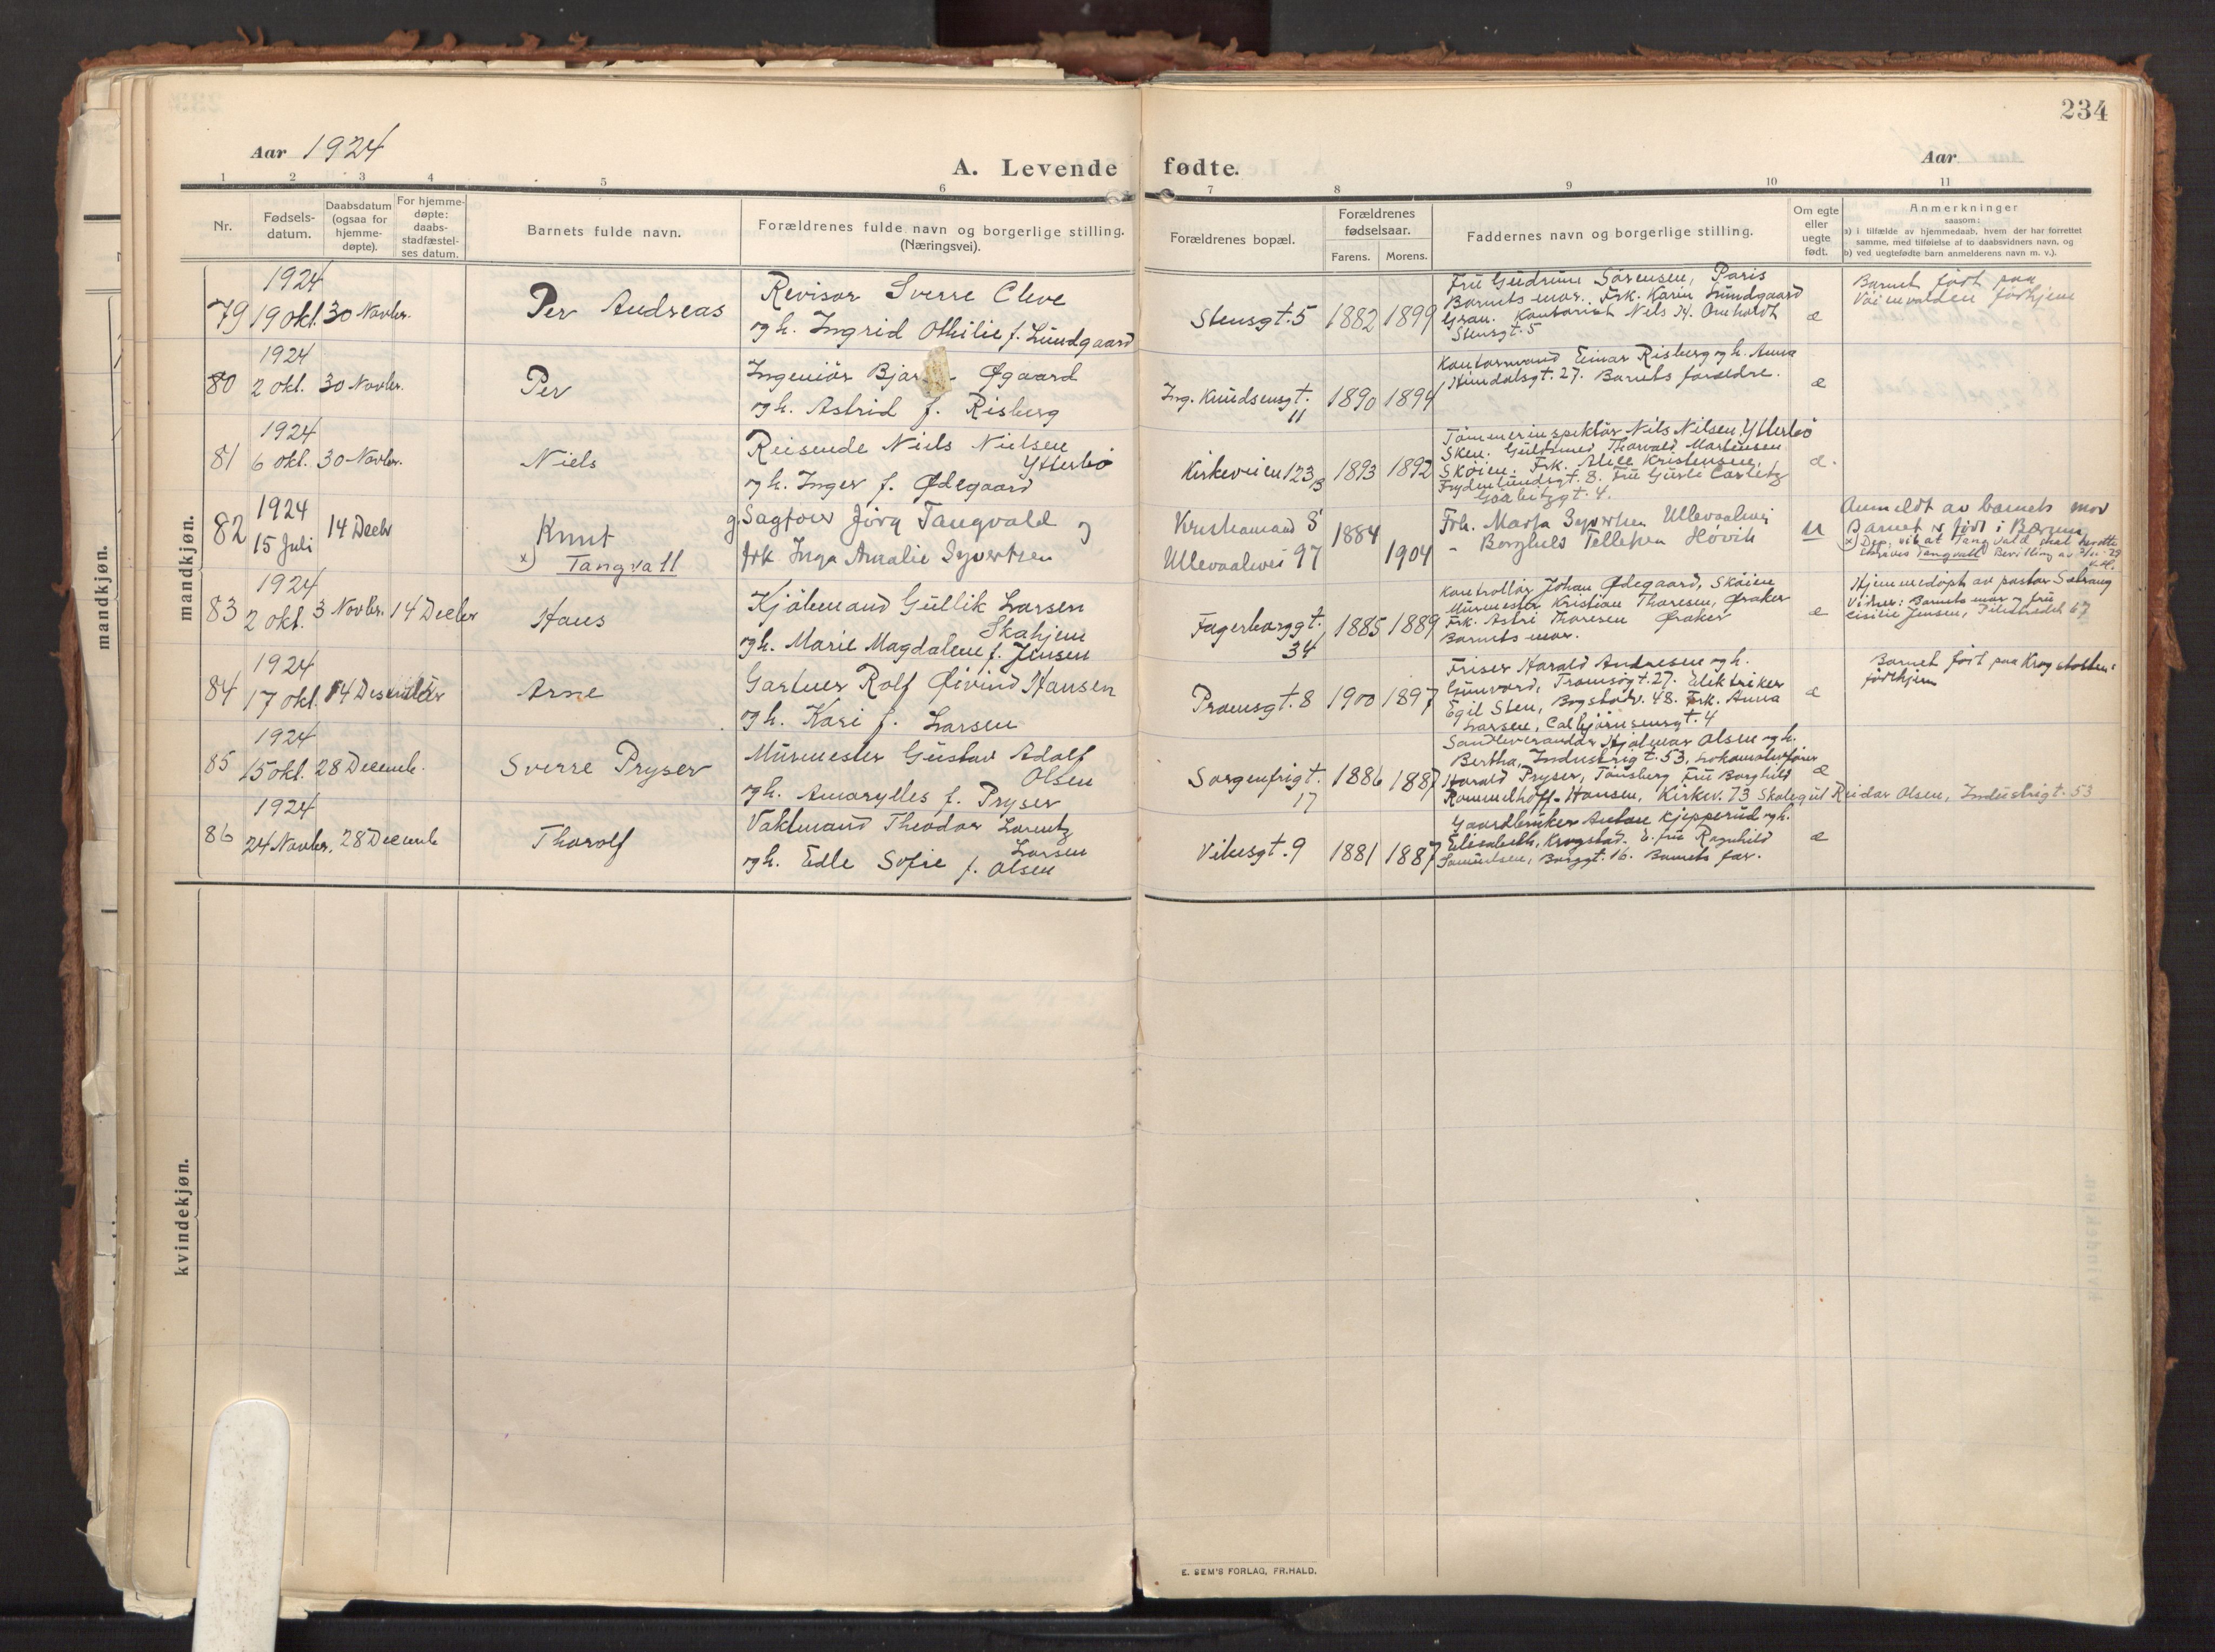 234
Aar 1924
A. Levende fødte.
Aar
1 2 3 4 5 6 7 8 9 10 11
Nr.
Fødsels-
datum.
Daabsdatum
(ogsaa for
hjemme-
døpte).
For hjemme-
døpte:
daabs-
stadfæstel-
ses datum.
Barnets fulde navn.
Forældrenes fulde navn og borgerlige stilling.
(Næringsvei).
Forældrenes bopæl.
Forældrenes
fødselsaar.
Farens. Morens.
Faddernes navn og borgerlige stilling.
Om egte
eller
uegte
født.
Anmerkninger
saasom:
a) i tilfælde av hjemmedaab, hvem der har forrettet
samme, med tilføielse af to daabsvidners navn, og
b) ved uegtefødte barn anmelderens navn m. v.).
mandkjøn.
mandkjøn.
1924
79 19 Okt. 30 Novbr.
Per Andreas
Revisor Sverre Cleve
og h. Ingrid Othilie f. Lundgaard
Stensgt. 5 1882 1899
Fru Gudrun Sörensen, Paris
Barnets mor. Frk. Karin Lundgaard
Gran. Kontorist Nils H. Omholdt
Stensgt. 5
e
Barnet født paa
Voienvolden födehjem
1924
80 2 Okt. 30 Novbr.
Per
Ingeniör Øgaard
og h. Astrid f. Risberg
Ing. Knudsensgt.
11
1890 1899
Kontormand Einar Risberg og h. Anna
27. Barnets forældre.
e
1924
81 6 Okt. 30 Novbr.
Niels
Reisende Niels Nielsen
Ytterbö
og h. Inger f. Ødegaard
Kirkeveien 123 B 1893 1892
Tömmerinspektör Nils Nilsen Ytterbö
Skien. Guldsmed Thorvald Martinsen
Sköien. Frk. Alice Kristensen,
Frydenlundsgt. 8. Fru
gt. 4.
e.
1924
82 15 Juli 14 Decbr
Knut
x) Tangvall
g. Sagfører Jörg Tangvald og
frk Inga Amalie Syvertsen
Kristiansand S
Ullevaalsvei 97
1884
1904
Frk. Marta Syvertsen Ullevaalsvei
- Borghild Tellefsen Høvik
u
Anmeldt av barnets mor
Barnet er født i Bærum
x) Tangvald skal herefter
skrives Tangvall Bevilling av
1924
83 2 Okt. 3 Novbr. 14 Decbr
Hans
Kjölemand Gullik Larsen
Skahjem
og h. Marie Magdalene f. Jensen
Fagerborggt.
34
1885 1889
Kontrollör Johan Ødegaard, Sköien
Murmester Kristian Thoresen, Øraker
Frk. Astri Thoresen Øraker
Barnets mor.
e
Hjemmedöpt av pastor
Vidner: Barnets mor og fru
Cisilie Jensen, Pilestrædet 67
1924
84 17 Okt. 14 Desember
Arne
Gartner Rolf Øivind Hansen
og h. Kari f. Larsen
Pramsgt. 8 1900 1897
Frisør Harald Andresen og h.
Gunvord, Tromsögt. 27. Elektriker
Egil Sten, Bogstadv. 48. Frk. Anna
Larsen, Calbjörnsensgt. 4
e
Barnet født paa Krogstøtten
födehjem
1924
85 15 Okt. 28 Decemb.
Sverre Pryser
Murmester Gustav Adolf
Olsen
og h. Amarylles f. Pryser
Sorgenfrigt.
17
1886 1887
Sandleverandör Hjalmar Olsen og h.
Bertha, Industrigt. 53, Lokomotivförer
Harald Pryser, Tönsberg Fru Borghild
Rommelhoff-Hansen, Kirkev. 73 Skolegut Reidar Olsen, Industrigt. 53
e
1924
86 24 Novbr. 28 Decemb
Thorolf
Vaktmand Theodor Lorentz
Larsen
og h. Edle Sofie f. Olsen
Vibesgt. 9 1881 1887
Gaardbruker Anton Kjepperud og h.
Elisabeth, Krogstad. E. fru Ragnhild
Samuelsen, Borggt. 16. Barnets far.
e
kvindekjøn.
E. SEM'S FORLAG, FR.HALD.